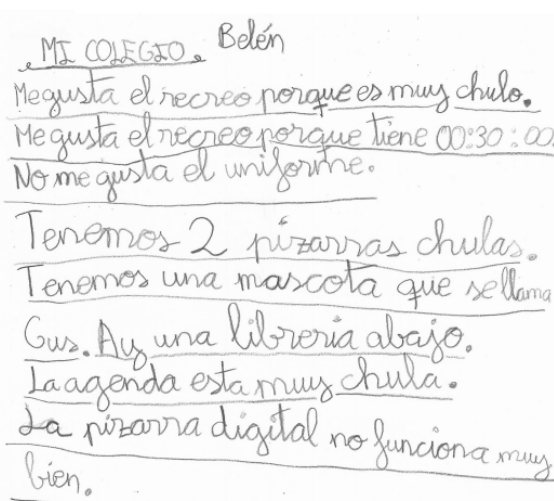 . MI COLEGIO. Belén
Me gusta el recreo porque es muy chulo.
Me gusta el recreo porque tiene 00:30:00.
No me gusta el uniforme.
Tenemos 2 pizarras chulas.
Tenemos una mascota que se llama
Gus. Ay una libreria abajo.
La agenda esta muy chula.
La pizarra digital no funciona muy
bien.